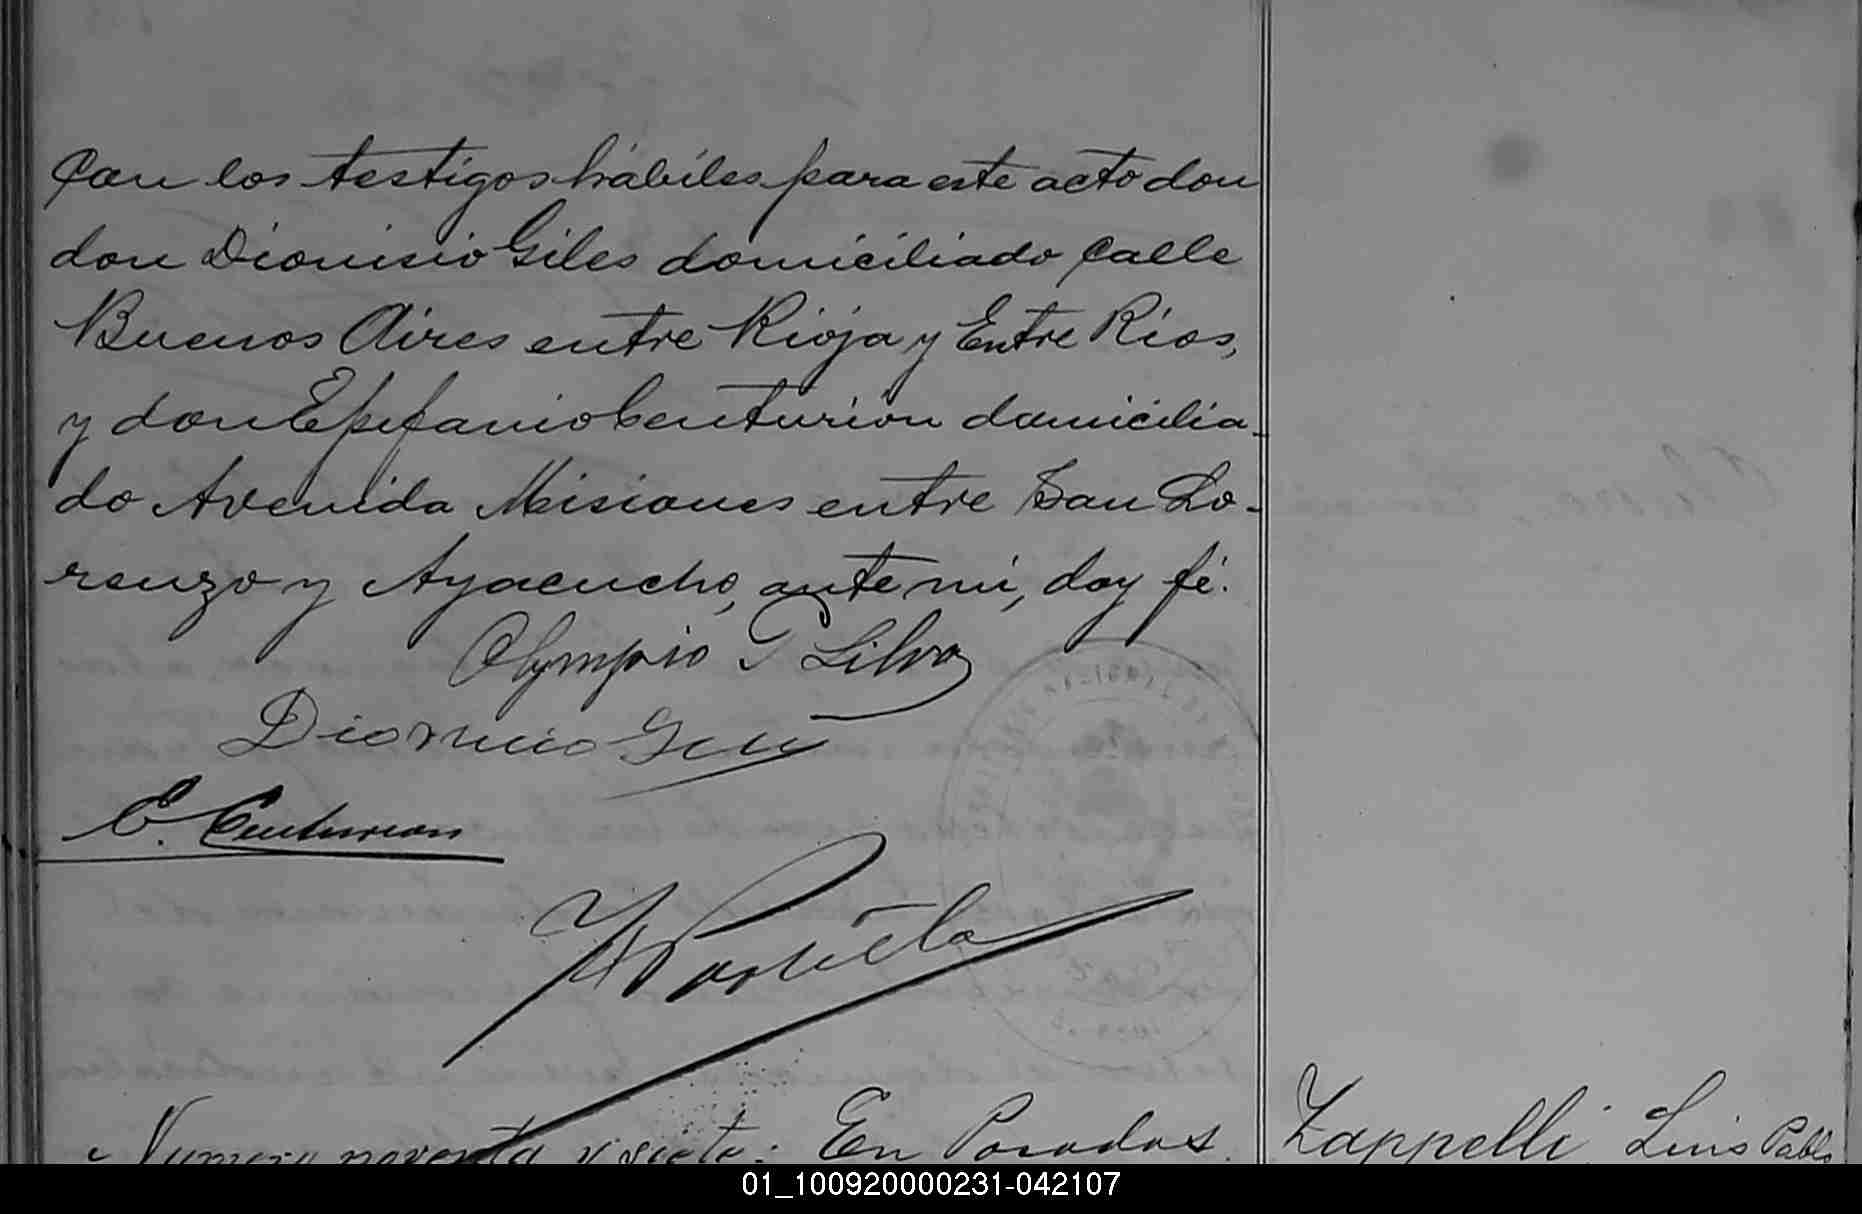 con los testigos hábiles para este acto don
don Dionisio Giles domiciliado calle
Buenos Aires entre Rioja y Entre Rios,
y don Epifanio Centurion domicilia-
do Avenida Misiones entre San Lo-
renzo y Ayacucho, ante mi, doy fé.
Olympio P Silva
Dionicio Giles
E. Centurion
Portela
Numero noventa y siete: En Posadas
Zappelli Luis Pablo
01_100920000231-042107